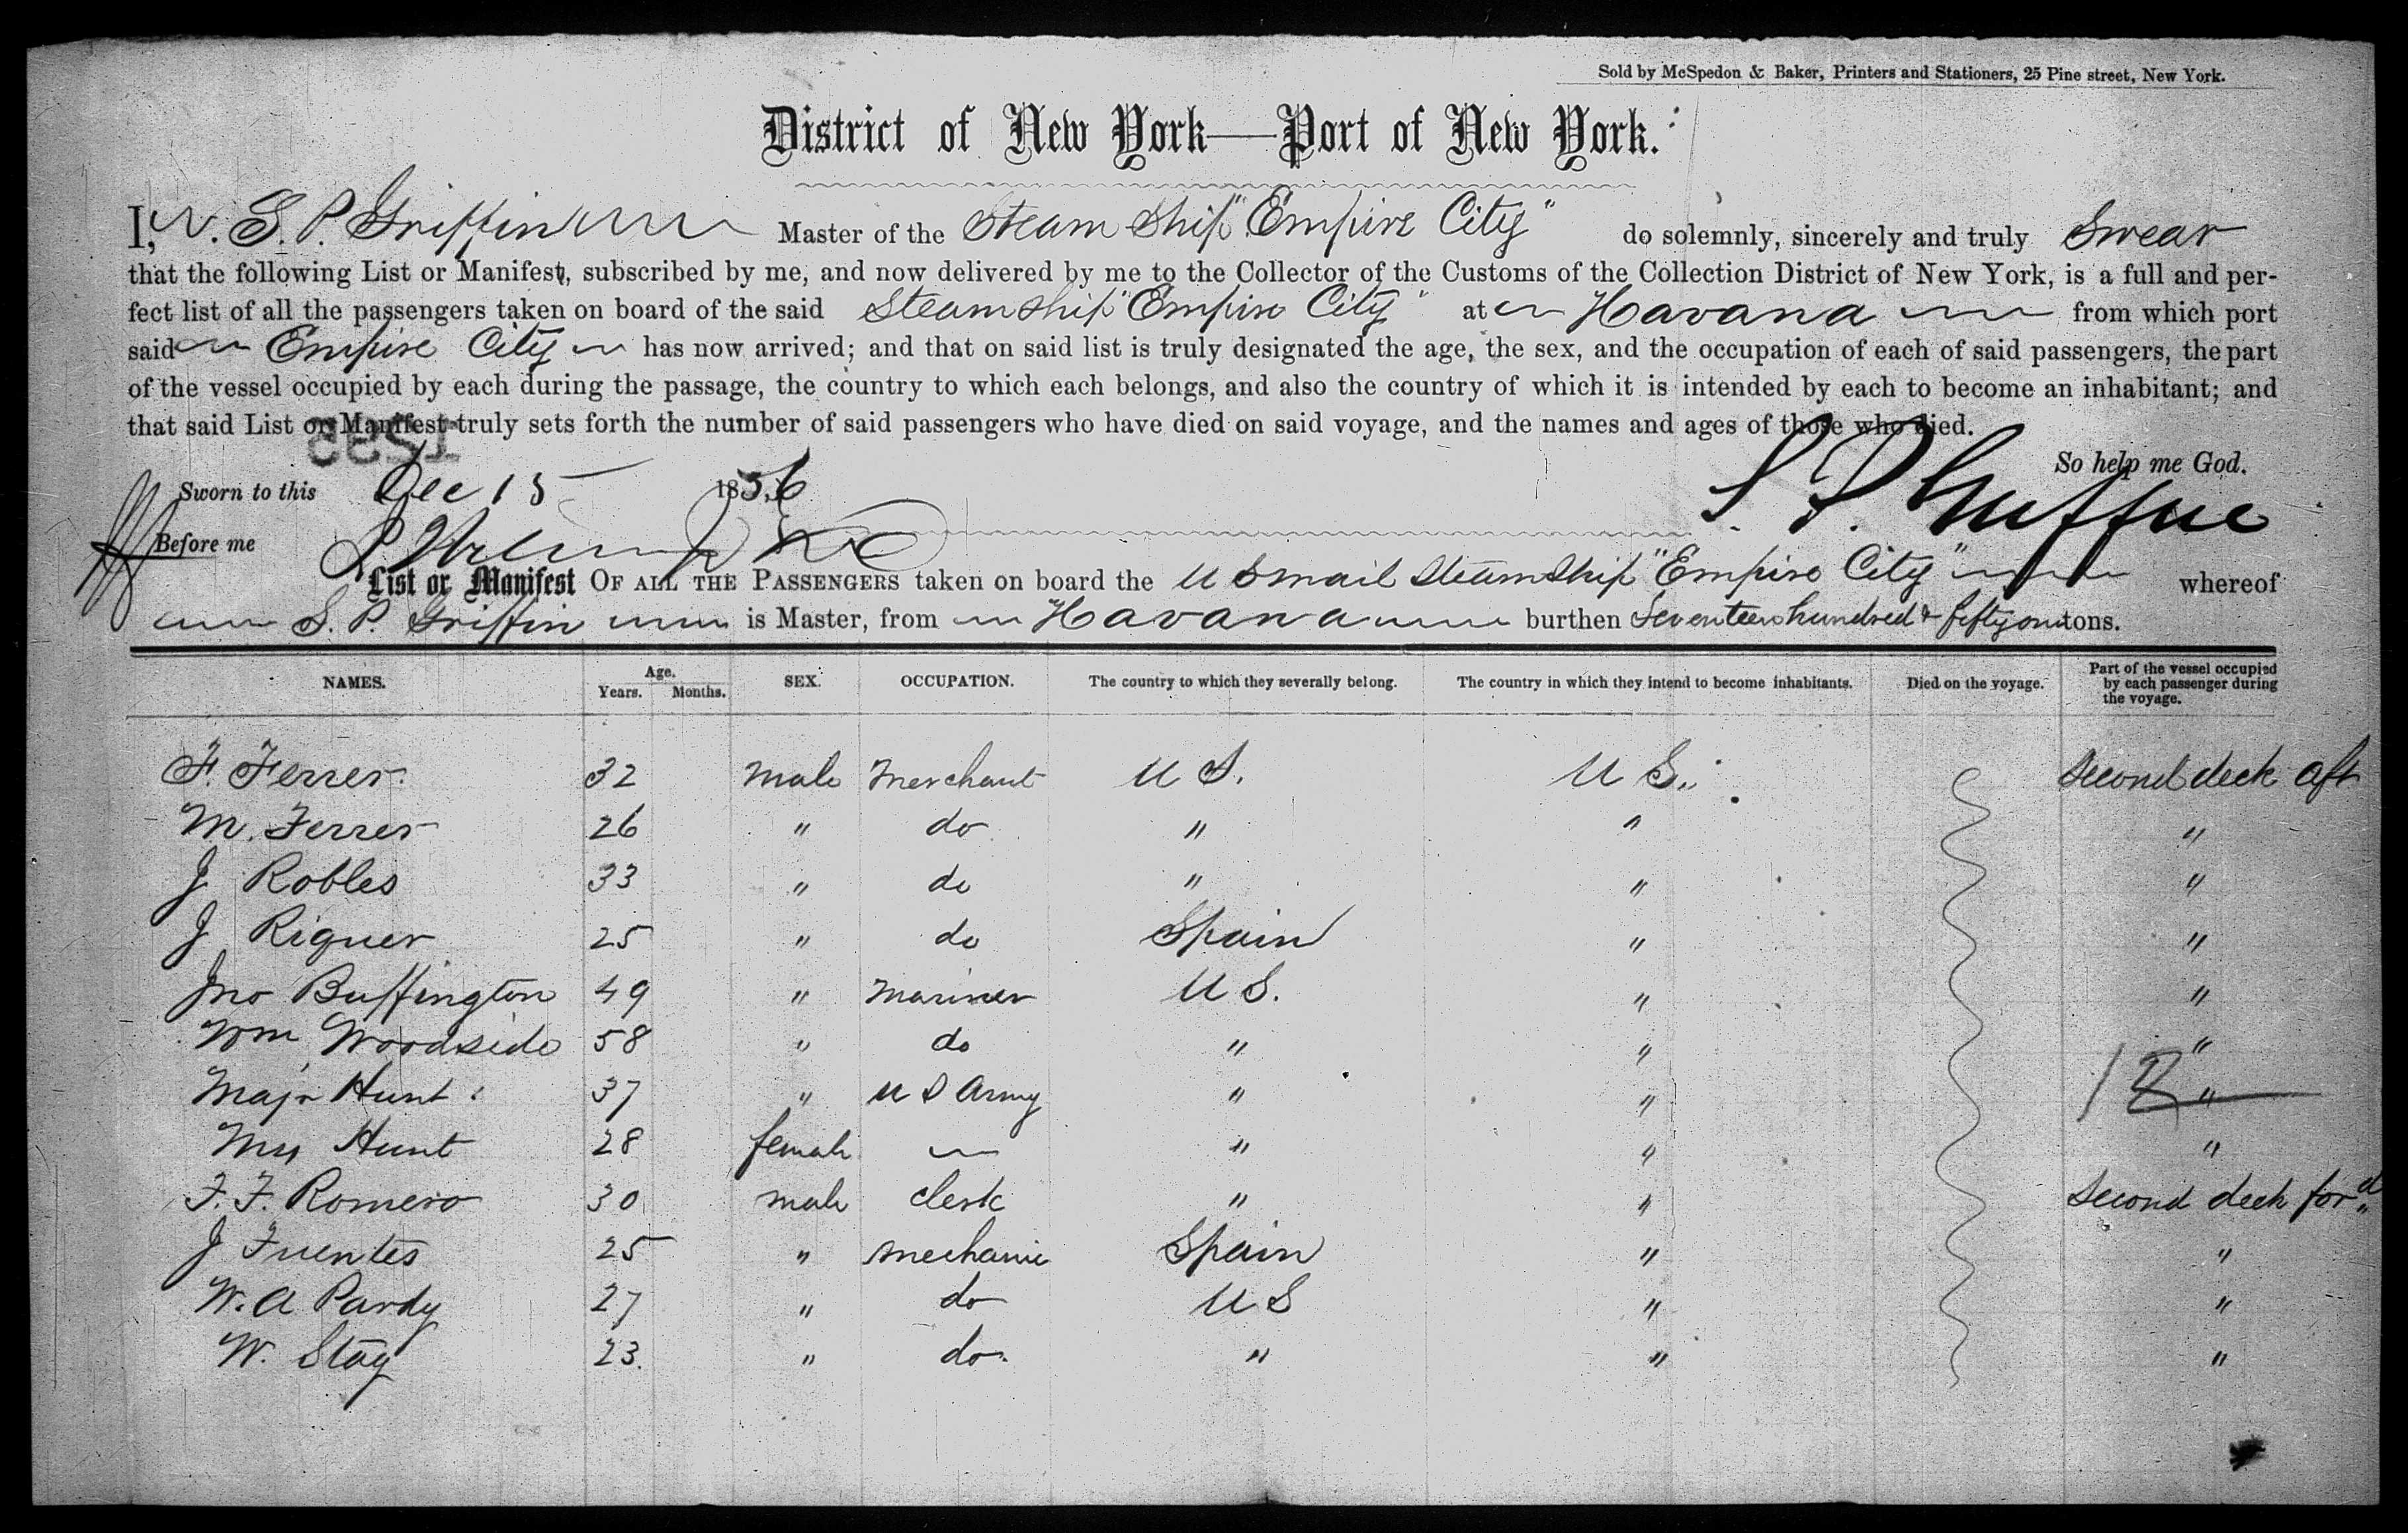 Sold by McSpedon & Baker, Printers and Stationers, 25 Pine street, New York.
District of New York—Port of New York.
I, S. P. Griffin Master of the Steam Ship "Empire City" do solemnly, sincerely and truly Swear
that the following List or Manifest, subscribed by me, and now delivered by me to the Collector of the Customs of the Collection District of New York, is a full and per-
fect list of all the passengers taken on board of the said Steam Ship "Empire City" at Havana from which port
said Empire City has now arrived; and that on said list is truly designated the age, the sex, and the occupation of each of said passengers, the part
of the vessel occupied by each during the passage, the country to which each belongs, and also the country of which it is intended by each to become an inhabitant; and
that said List or Manifest truly sets forth the number of said passengers who have died on said voyage, and the names and ages of those who died.
So help me God.
Sworn to this Dec 15 1856 S. P. Griffin
Before me
List or Manifest OF ALL THE PASSENGERS taken on board the U S mail Steam Ship "Empire City" whereof
S. P. Griffin is Master, from Havana burthen Seventeen hundred & fifty one tons.
NAMES. Age. Years. Months. SEX. OCCUPATION. The country to which they severally belong. The country in which they intend to become inhabitants. Died on the voyage. Part of the vessel occupied by each passenger during the voyage.
F. Ferrer 32 male Merchant U S. U S. Second deck aft
M. Ferrer 26 " do " " "
J Robles 33 " do " " "
J Riquer 25 " do Spain " "
Jno Buffington 49 " Mariner U S. " "
Wm Woodside 58 " do " " "
Majr Hunt 37 " U S Army " " "
12
Mrs Hunt 28 female " " "
F. F. Romero 30 male clerk " " Second deck ford
J Fuentes 25 " mechanic Spain " "
W. A Pardy 27 " do U S " "
W. Stag 23. " do. " " "